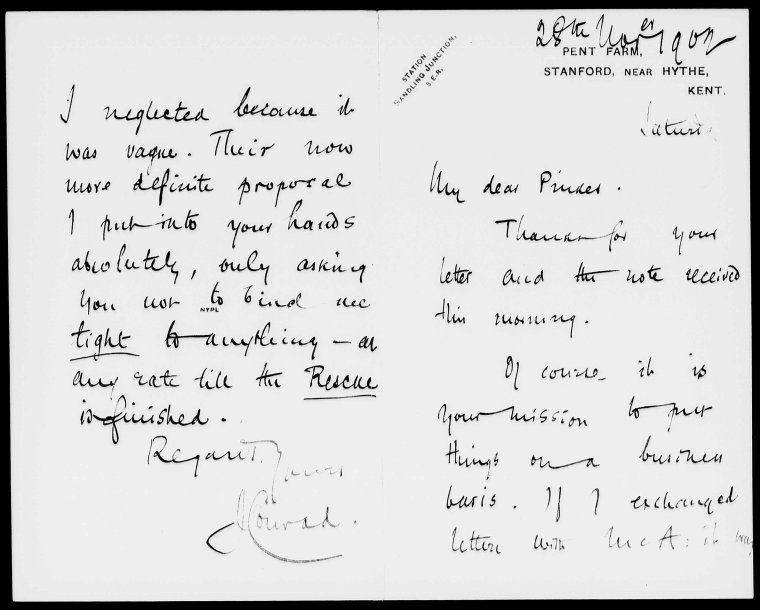 STATION
SANDLING JUNCTION,
S.E.R.
28th Nover 1902
PENT FARM,
STANFORD, NEAR HYTHE,
KENT.
Saturd
My dear Pinker.
Thanks for your
letter and the note received
this morning.
Of course it is
your mission to put
things on a business
basis. If I exchanged
letters with McA: it
I neglected because it
was vague. Their now
more definite proposal
I put into your hands
absolutely, only asking
you not to bind me
NYPL
tight to anything – at
any rate till the Rescue
is finished.
Regards. Yours
J Conrad.